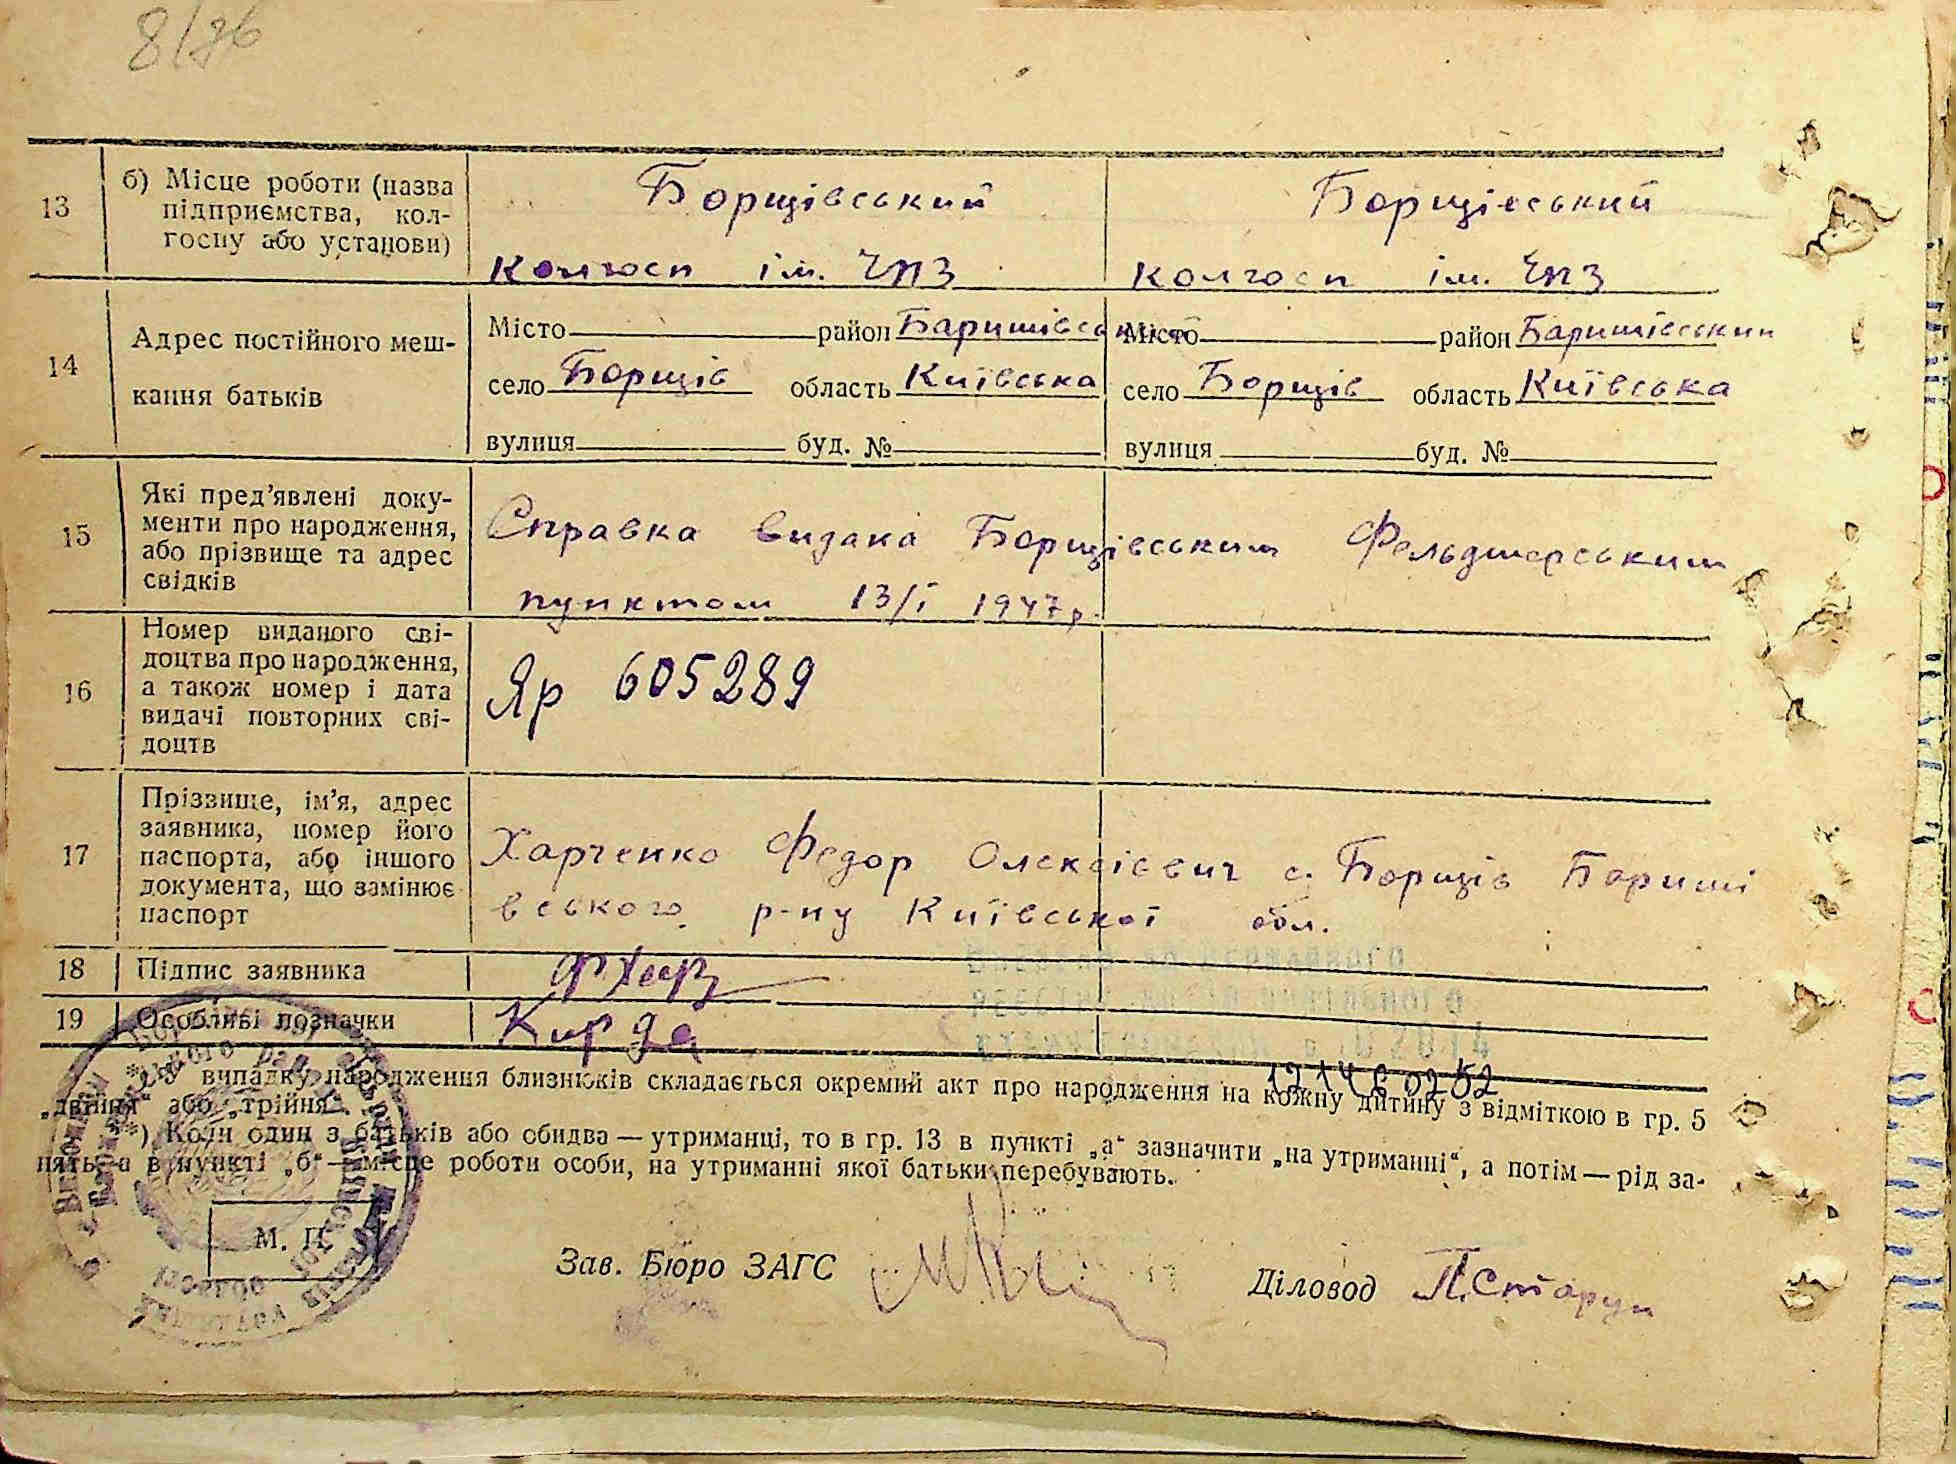 13 б) Місце роботи (назва підприємства, колгоспу або установи)
Борщівський Борщівський
колгосп ім. ЧПЗ колгосп ім. ЧПЗ
14 Адрес постійного мешкання батьків
Місто район Баришівський Місто район Баришівський
село Борщів область Київська село Борщів область Київська
вулиця буд. № вулиця буд. №
15 Які пред'явлені доку-
менти про народження,
або прізвище та адрес
свідків
Справка видана Борщівським Фельдшерським
пунктом 13/I 1947 р.
16 Номер виданого сві-
доцтва про народження,
а також номер і дата
видачі повторних сві-
доцтв
Яр 605289
17 Прізвище, ім'я, адрес
заявника, номер його
паспорта, або іншого
документа, що замінює
паспорт
Харченко Федор Олексієвич с. Борщів Бариші
вського р-ну Київської обл.
18 Підпис заявника ФХар
19 Особливі позначки Кирда
У випадку народження близнюків складається окремий акт про народження на кожну дитину з відміткою в гр. 5
„двійня“ або „трійня“.
**) Коли один з батьків або обидва — утриманці, то в гр. 13 в пункті „а“ зазначити „на утриманні“, а потім — рід за-
нять, а в пункті „б“ — місце роботи особи, на утриманні якої батьки перебувають.
М. П.
Зав. Бюро ЗАГС Діловод П. Старун